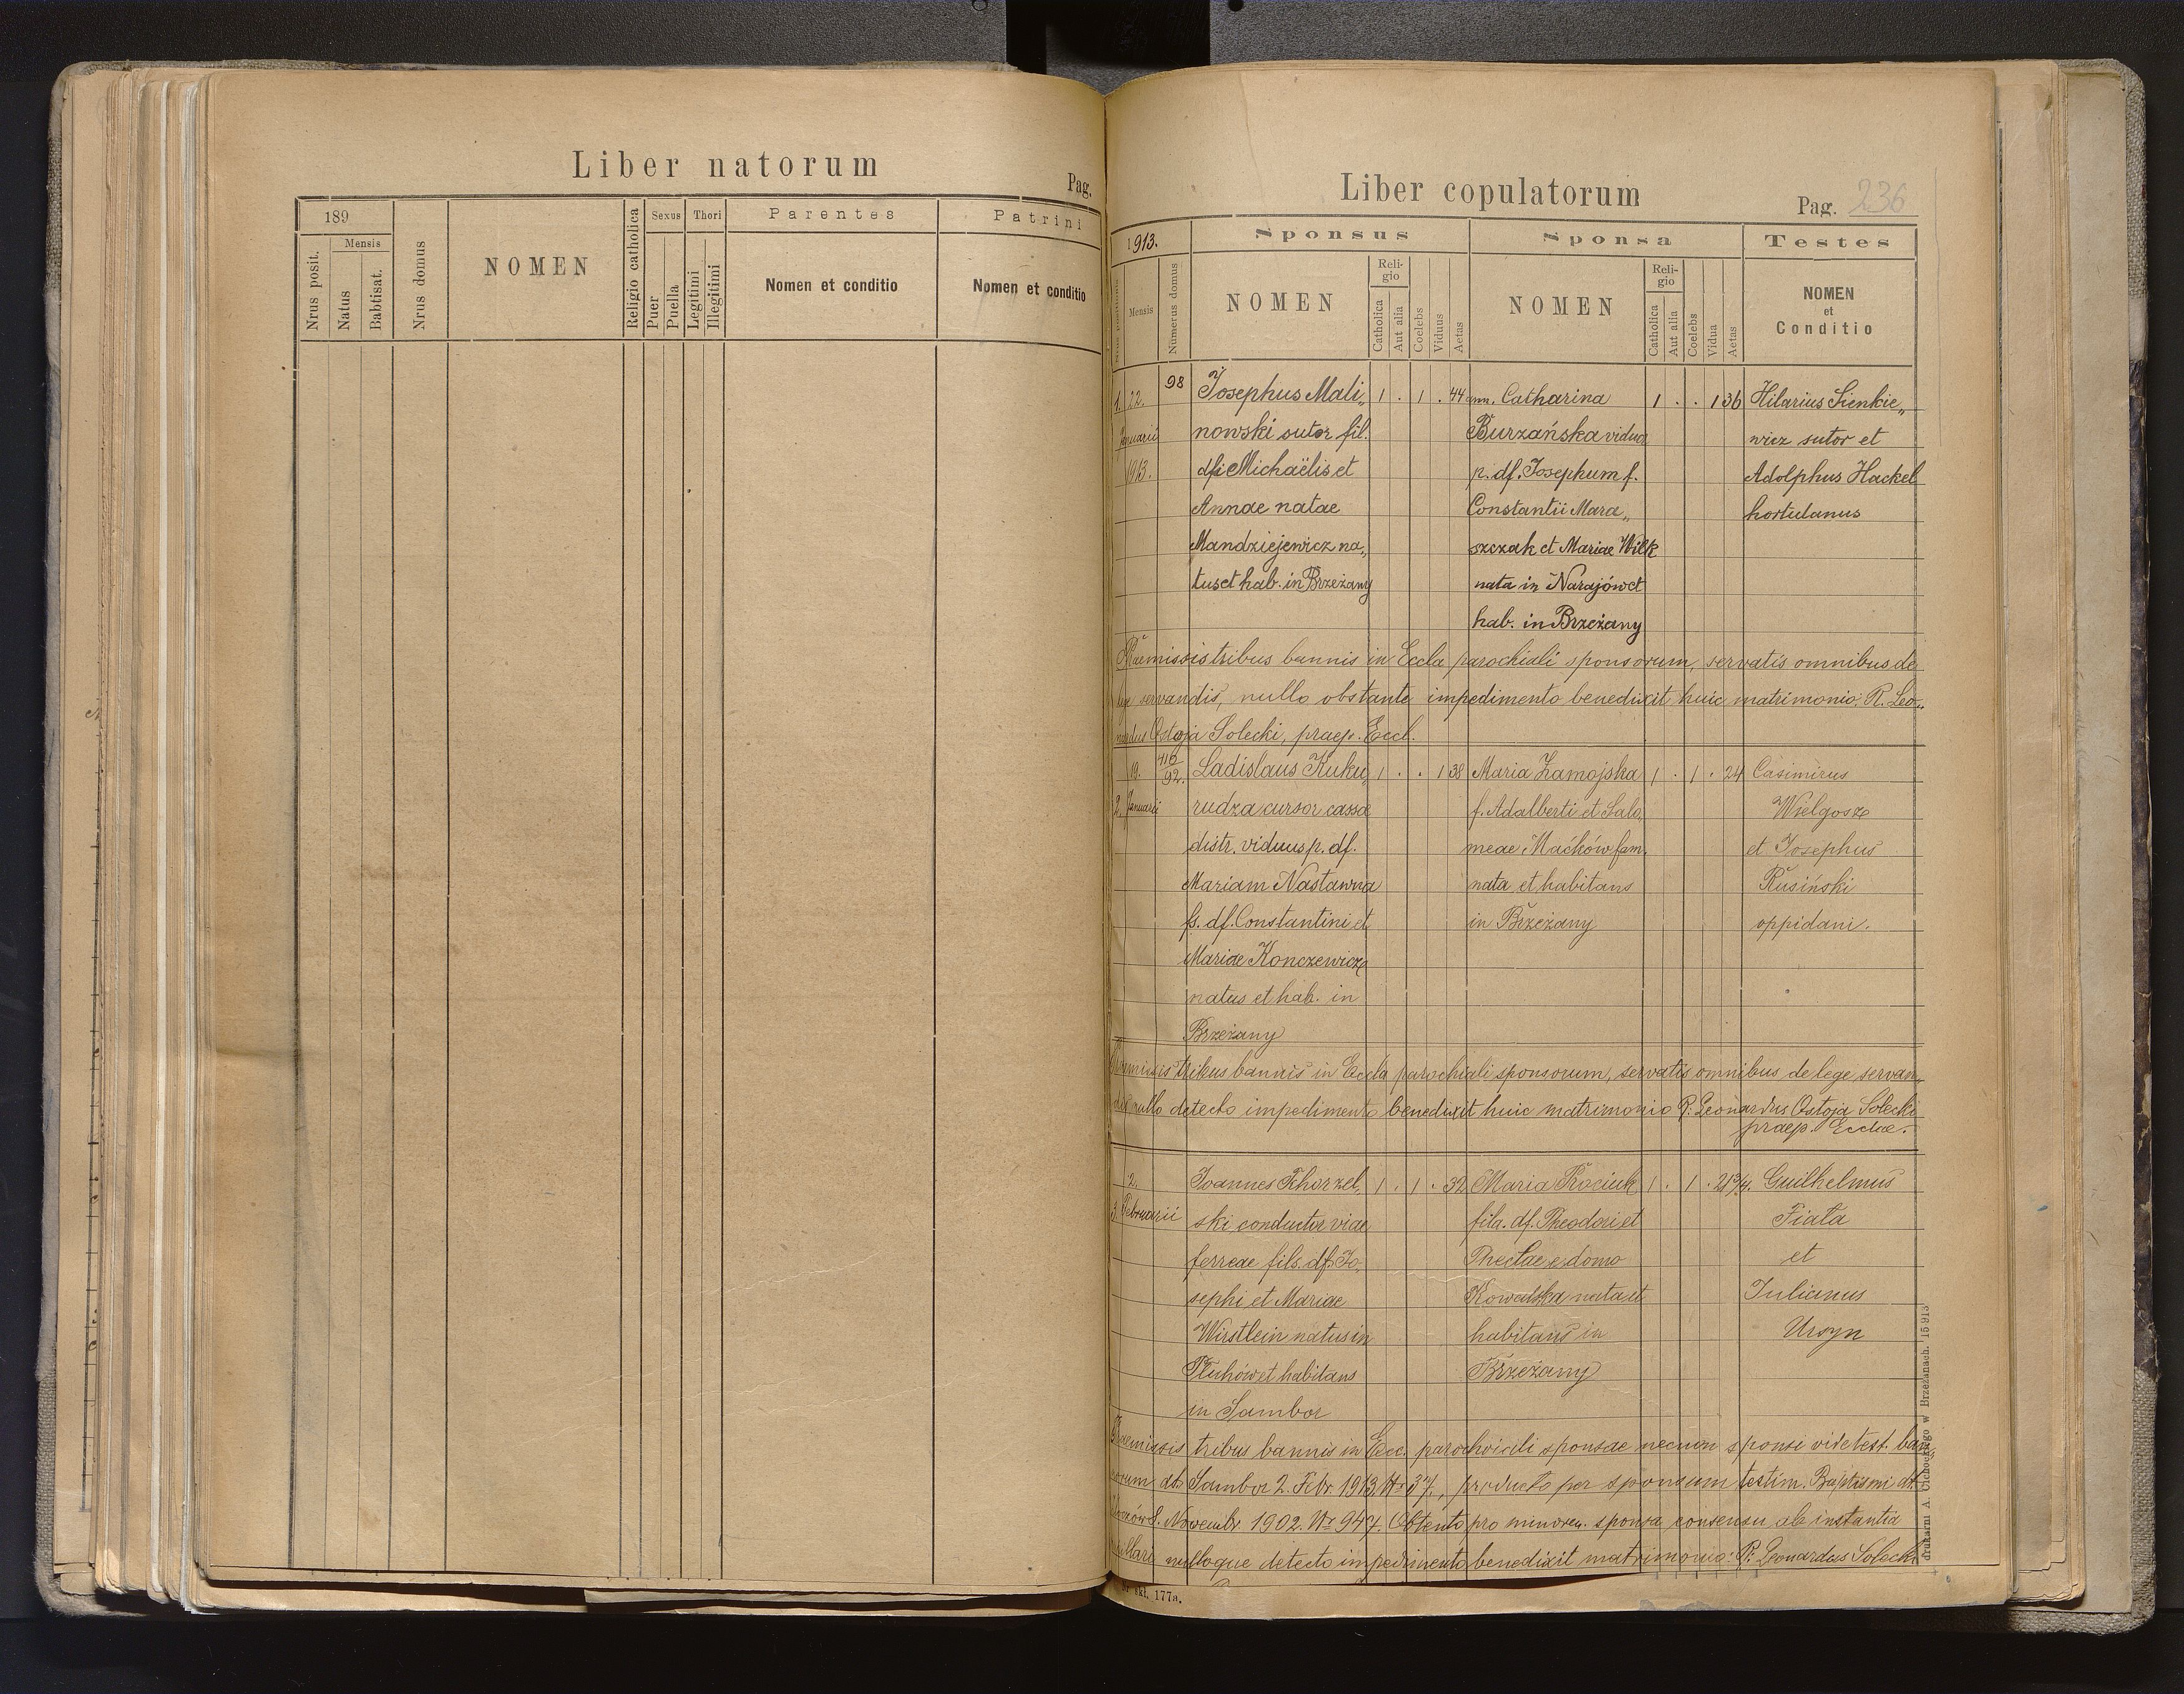 Liber natorum
Pag.
189
Mensis
Nrus posit.
Natus
Babtisat.
Nrus domus
NOMEN
Religio catholica
Sexus
Puer
Puella
Thori
Legitimi
Illegitimi
Parentes
Nomen et conditio
Patrini
Nomen et conditio
Liber copulatorum
Pag. 236
1913.
Sponsus
Sponsa
Testes
Mensis
Numerus domus
NOMEN
Religio
Catholica
Aut alia
Coelebs
Viduus
Aetas
NOMEN
Religio
Catholica
Aut alia
Coelebs
Vidua
Aetas
NOMEN
et
Conditio
1. 22. 98 Josephus Mali„ 1 . 1 . 44 ann. Catharina 1 . . 1 36 Hilarius Sienkie„
Januarii nowski sutor fil. Burzańska vidua wicz sutor et
1913. dfi Michaëlis et p. df. Josephum f. Adolphus Hackel
Annae natae Constantii Mara„ hortulanus
Mandziejewicz na„ szczak et Mariae Wilk
tus et hab. in Brzeżany nata in Narajów et
hab. in Brzeżany
Praemissis tribus bannis in Eccla parochiali sponsorum, servatis omnibus de
lege servandis, nullo obstante impedimento benedixit huic matrimonio: R. Leo„
nardus Ostoja Solecki, praep. Eccl.
19. 416/92. Ladislaus Kuku„ 1 . . 1 38 Maria Zamojska 1 . 1 . 24 Casimirus
2. Januarii rudza cursor cassae f. Adalberti et Salo„ Wielgosz
distr. viduus p. df. meae Maćków fam. et Josephus
Mariam Nastawna nata et habitans Rusiński
fs. df. Constantini et in Brzeżany oppidani.
Mariae Konczewicz
natus et hab. in
Brzeżany
Praemissis tribus bannis in Eccla parochiali sponsorum, servatis omnibus de lege servan„
dis nullo detecto impedimento benedixit huic matrimonio R: Leonardus Ostoja Solecki
praep. Ecclae.
2. Joannes Khorzel„ 1 . 1 . 32 Maria Prociuk 1 . 1 . 21 3/4. Guilhelmus
3. Februarii ski, conductor viae fila. df. Theodori et Fiata
ferreae fils. df. Jo„ Theclae e domo et
sephi et Mariae Kowalska nata et Julianus
Wirstlein natus in habitans in Ursyn
Pluhów et habitans Brzeżany
in Sambor
Praemissis tribus bannis in Ecc. parochiali sponsae necnon sponsi vide test. ban„
norum dt. Sambor 2. Febr. 1913 Nr 37., producto per sponsum testim. Baptismi dt.
8. Novembr. 1902. Nr 947. Obtento pro minoren. sponsa consensu ab instantia
nulloque detecto impedimento benedixit matrimonio: R: Leonardus Solecki
drukarni A. Cichockiego w Brzeżanach. 15 913
Nr skł. 177a.